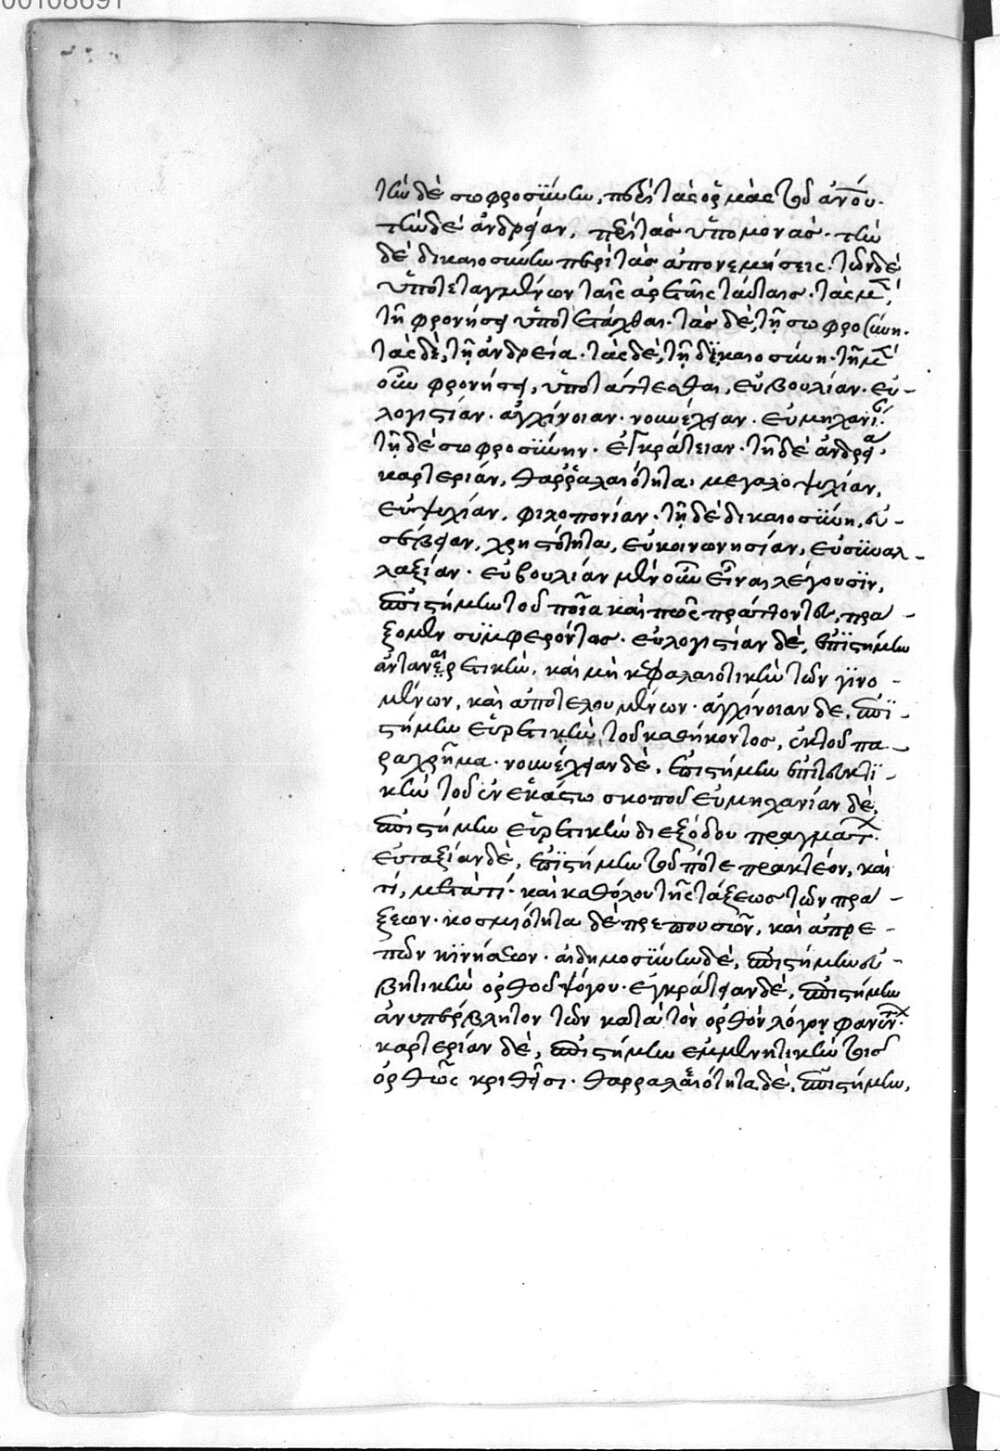 00108691
τὴν δὲ σωφροσύνην, περὶ τὰς ὁρμὰς τοῦ ἀνου·
τὴν δὲ ἀνδρείαν, περὶ τὰς ὑπομονάς· τὴν
δὲ δικαιοσύνην περὶ τὰς ἀπονεμήσεις· τῶν δὲ
ὑποτεταγμένων ταῖς ἀρεταῖς ταύταις· τὰς μὲν,
τῇ φρονήσει ὑποτετάχθαι· τὰς δὲ, τῇ σωφροσύνῃ·
τὰς δὲ, τῇ ἀνδρεία· τὰς δὲ, τῇ δικαιοσύνῃ· τῇ μὲν
οὖν φρονήσει, ὑποτάττεσθαι, εὐβουλίαν· εὐ-
λογιστίαν· ἀγχίνοιαν· νουνέχειαν· εὐμηχανί
τῇ δὲ σωφροσύνῃ· ἐγκράτειαν· τῇ δὲ ἀνδρεία
καρτερίαν, θαρραλαιότητα, μεγαλοψυχίαν,
εὐψυχίαν, φιλοπονίαν· τῇ δὲ δικαιοσύνῃ, εὐ-
σέβειαν, χρηστότητα, εὐκοινωνησίαν, εὐσυναλ-
λαξίαν· εὐβουλίαν μὲν οὖν εἶναι λέγουσιν,
ἐπιστήμην τοῦ ποῖα καὶ πῶς πράττοντες, πρά-
ξομεν συμφερόντως· εὐλογιστίαν δὲ, ἐπιστήμην
ἀνταναιρετικὴν, καὶ μὴ κεφαλαιοτικὴν τῶν γινο-
μένων, καὶ ἀποτελουμένων· ἀγχίνοιαν δὲ, ἐπι-
στήμην εὑρετικὴν τοῦ καθήκοντος, ἐκ τοῦ πα-
ραχρῆμα· νουνέχειαν δὲ, ἐπιστήμην ἐπιτευκτι-
κὴν τοῦ ἐν ἑκάστω σκοποῦ εὐμηχανίαν δὲ,
ἐπιστήμην εὑρετικὴν διεξόδου πραγμάτ
εὐταξίαν δὲ, ἐπιστήμην τοῦ πότε πρακτέον, καὶ
τί, μετὰ τί· καὶ καθόλου τῆς τάξεως τῶν πρά-
ξεων· κοσμιότητα δὲ πρεπουσῶν, καὶ ἀπρε-
πῶν κινήσεων· αἰδημοσύνην δὲ, ἐπιστήμην εὐ-
βητικὴν ὀρθοῦ ψόγου· ἐγκράτειαν δὲ, ἐπιστήμην
ἀνυπέρβλητον τῶν κατὰ τὸν ὀρθὸν λόγον φανέν
καρτερίαν δὲ, ἐπιστήμην ἐμμενητικὴν τοῖς
ὀρθῶς κριθεῖσι· θαρραλαιότητα δὲ, ἐπιστήμην,